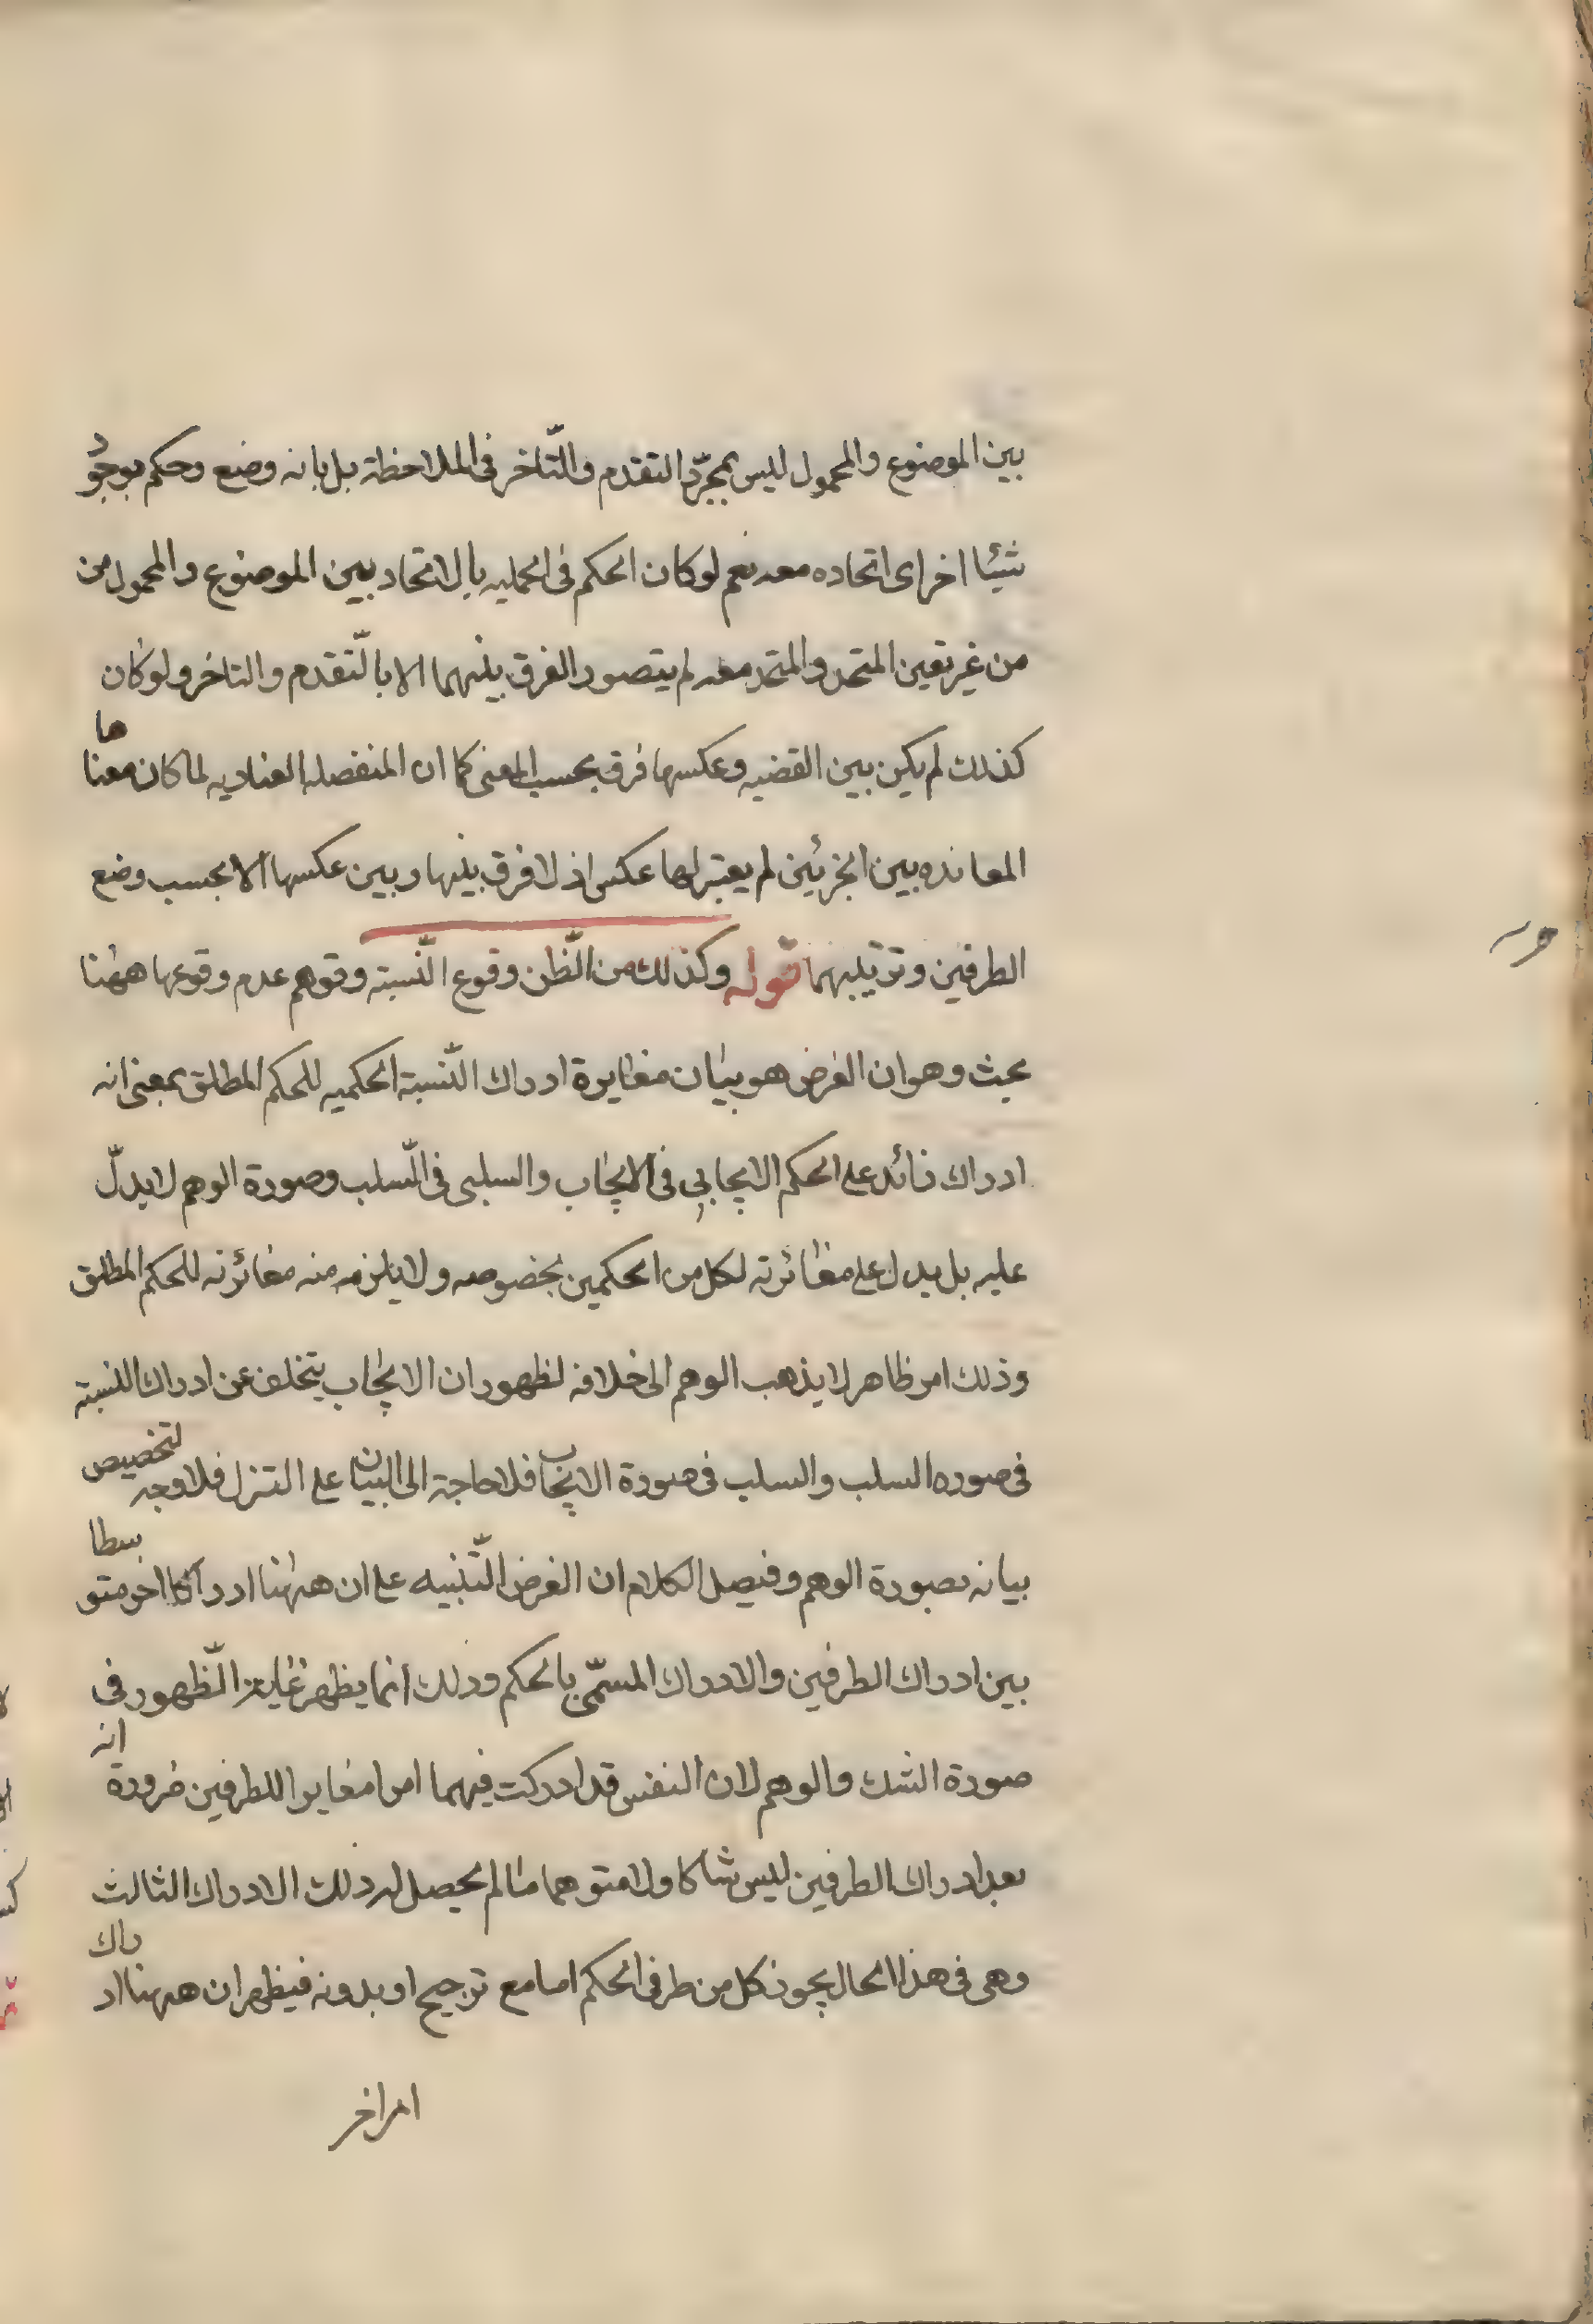 بين الموضوع والمحمول ليس بمجرّد التقدم والتّاخر فى الملاحظة بل بانه وضع وحكم بوجود
شيئا اخر اى اتحاده معه نعم لو كان الحكم فى الحمليه بالاتحاد بين الموضوع والمحمول من
من غير تعين المتحد والمتحد معه لم يتصور الفرق بينهما الا بالتّقدم والتاخر ولو كان
كذلك لم يكن بين القضيه وعكسها فرق بحسب المعنى كما ان المنفصله العناديه لما كان معناها
المعانده بين الجزئين لم يعتبر لها عكس اذ لا فرق بينها وبين عكسها الا بحسب وضع
الطرفين وترتيبهما قوله وكذلك من الّظن وقوع النّسبته وتوهم عدم وقوعها ههنا
بحث وهو ان الغرض هو بيان مغايرة ادراك النّسبة الحكميه للحكم المطلق بمعنى انه
ادراك زائد على الحكم الايجابى فى الايجاب والسلبى فى السّلب وصورة الوهم لا يدلّ
عليه بل يدل على مغائرته لكل من الحكمين بخصوصه ولا يلزمه منه مغائرته للحكم المطلق
وذلك امر ظاهر لا يذهب الوهم الى خلافه لظهور ان الايجاب يتخلف عن ادراك النسبته
فى صوره السلب والسلب فى صورة الايجاب فلا حاجة الى البيان على التنزل فلا وجه لتخصيص
بيانه بصورة الوهم وفيصل الكلام ان الغرض التّنبيه على ان ههنا ادراكا اخر متوسطا
بين ادراك الطرفين والادراك المسمّى بالحكم وذلك انما يظهر غاية الّظهور فى
صورة الشك والوهم لان النفس قد ادركت فيهما امرا مغايرا للطرفين ضرورة انه
بعد ادراك الطرفين ليس شاكا ولا متوهما ما لم يحصل له ذلك الادراك الثالث
وهى فى هذا الحال يجوز كل من طرفى الحكم اما مع ترجيح او بدونه فيظهر ان ههنا ادراك
امرا خر